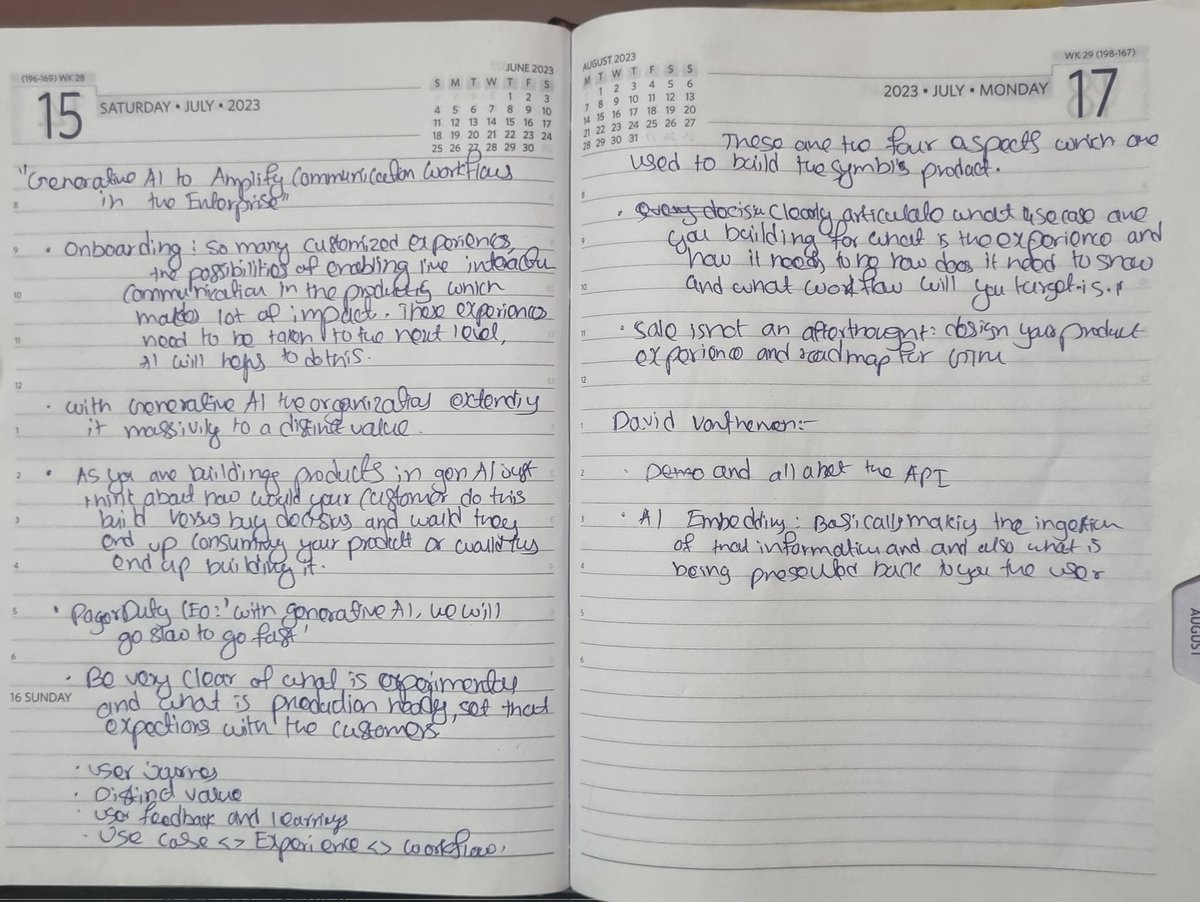 (196-169) WK 28
15
SATURDAY • JULY • 2023
JUNE 2023
S M T W T F S
1 2 3
4 5 6 7 8 9 10
11 12 13 14 15 16 17
18 19 20 21 22 23 24
25 26 27 28 29 30
"Generative AI to Amplify Communication workflows
in the Enterprise"
8
9 • Onboarding : so many customized experiences
the possibilities of enabling live
10 communication in the product is which
makes lot of impact. These experiences
11 need to be taken to the next level,
AI will helps to do this.
12
• with Generative AI the organization
1 it massively to a distinct value.
2 • As you are building products in gen AI just
think about how would your customer do this
3 build versus buy and would they
end up consuming your product or would they
4 end up building it.
5 • PagerDuty CEO: 'with generative AI, we will
go slow to go fast'
6
• Be very clear of what is
16 SUNDAY and what is production ready, set that
expections with the customers.
• user
• Distind value
• user feedback and learnings
• Use case <> Experience <> workflow.
AUGUST 2023
M T W T F S S
1 2 3 4 5 6
7 8 9 10 11 12 13
14 15 16 17 18 19 20
21 22 23 24 25 26 27
28 29 30 31
WK 29 (198-167)
2023 • JULY • MONDAY
17
These are the four aspects which are
used to build the symbl's product.
8
• Clearly articulate what usecase are
9 you building for what is the experience and
how it needs to be how does it need to show
10 and what workflow will you target is.
11 • Sale is not an afterthought: design your product
experience and roadmap for
12
1 David Vonthenen:-
2 • Demo and all abet the API
3 • AI Embedding: Basically making the ingestion
of that information and and also what is
4 being presented back to you the user
5
6
AUGUST